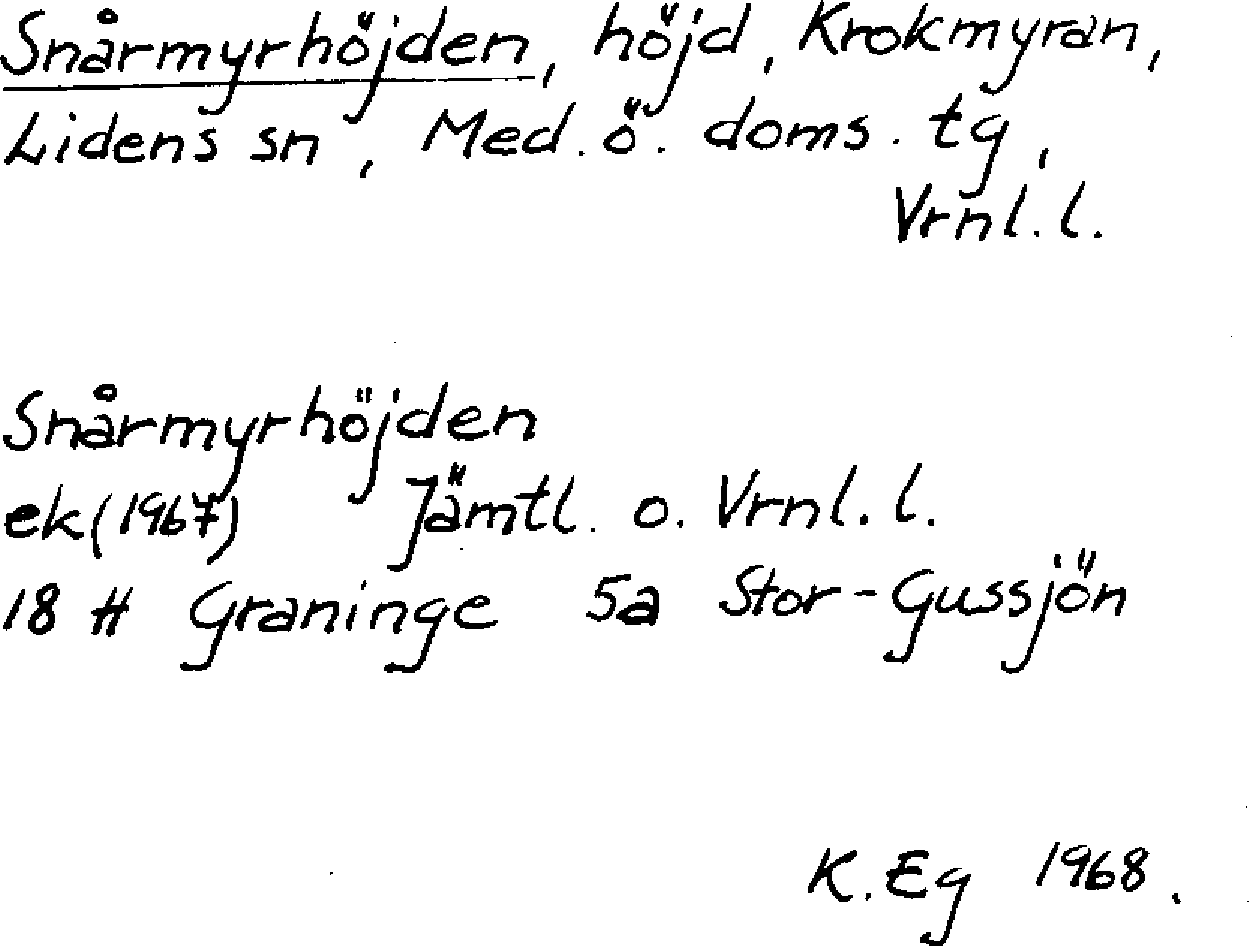 Snårmyrhöjden, höjd, Krokmyran,
Lidens sn, Med. ö. doms. tg,
Vrnl. l.
Snårmyrhöjden
ek (1967) Jämtl. o. Vrnl. l.
18 H Graninge 5a Stor-Gussjön
K. Eg 1968.